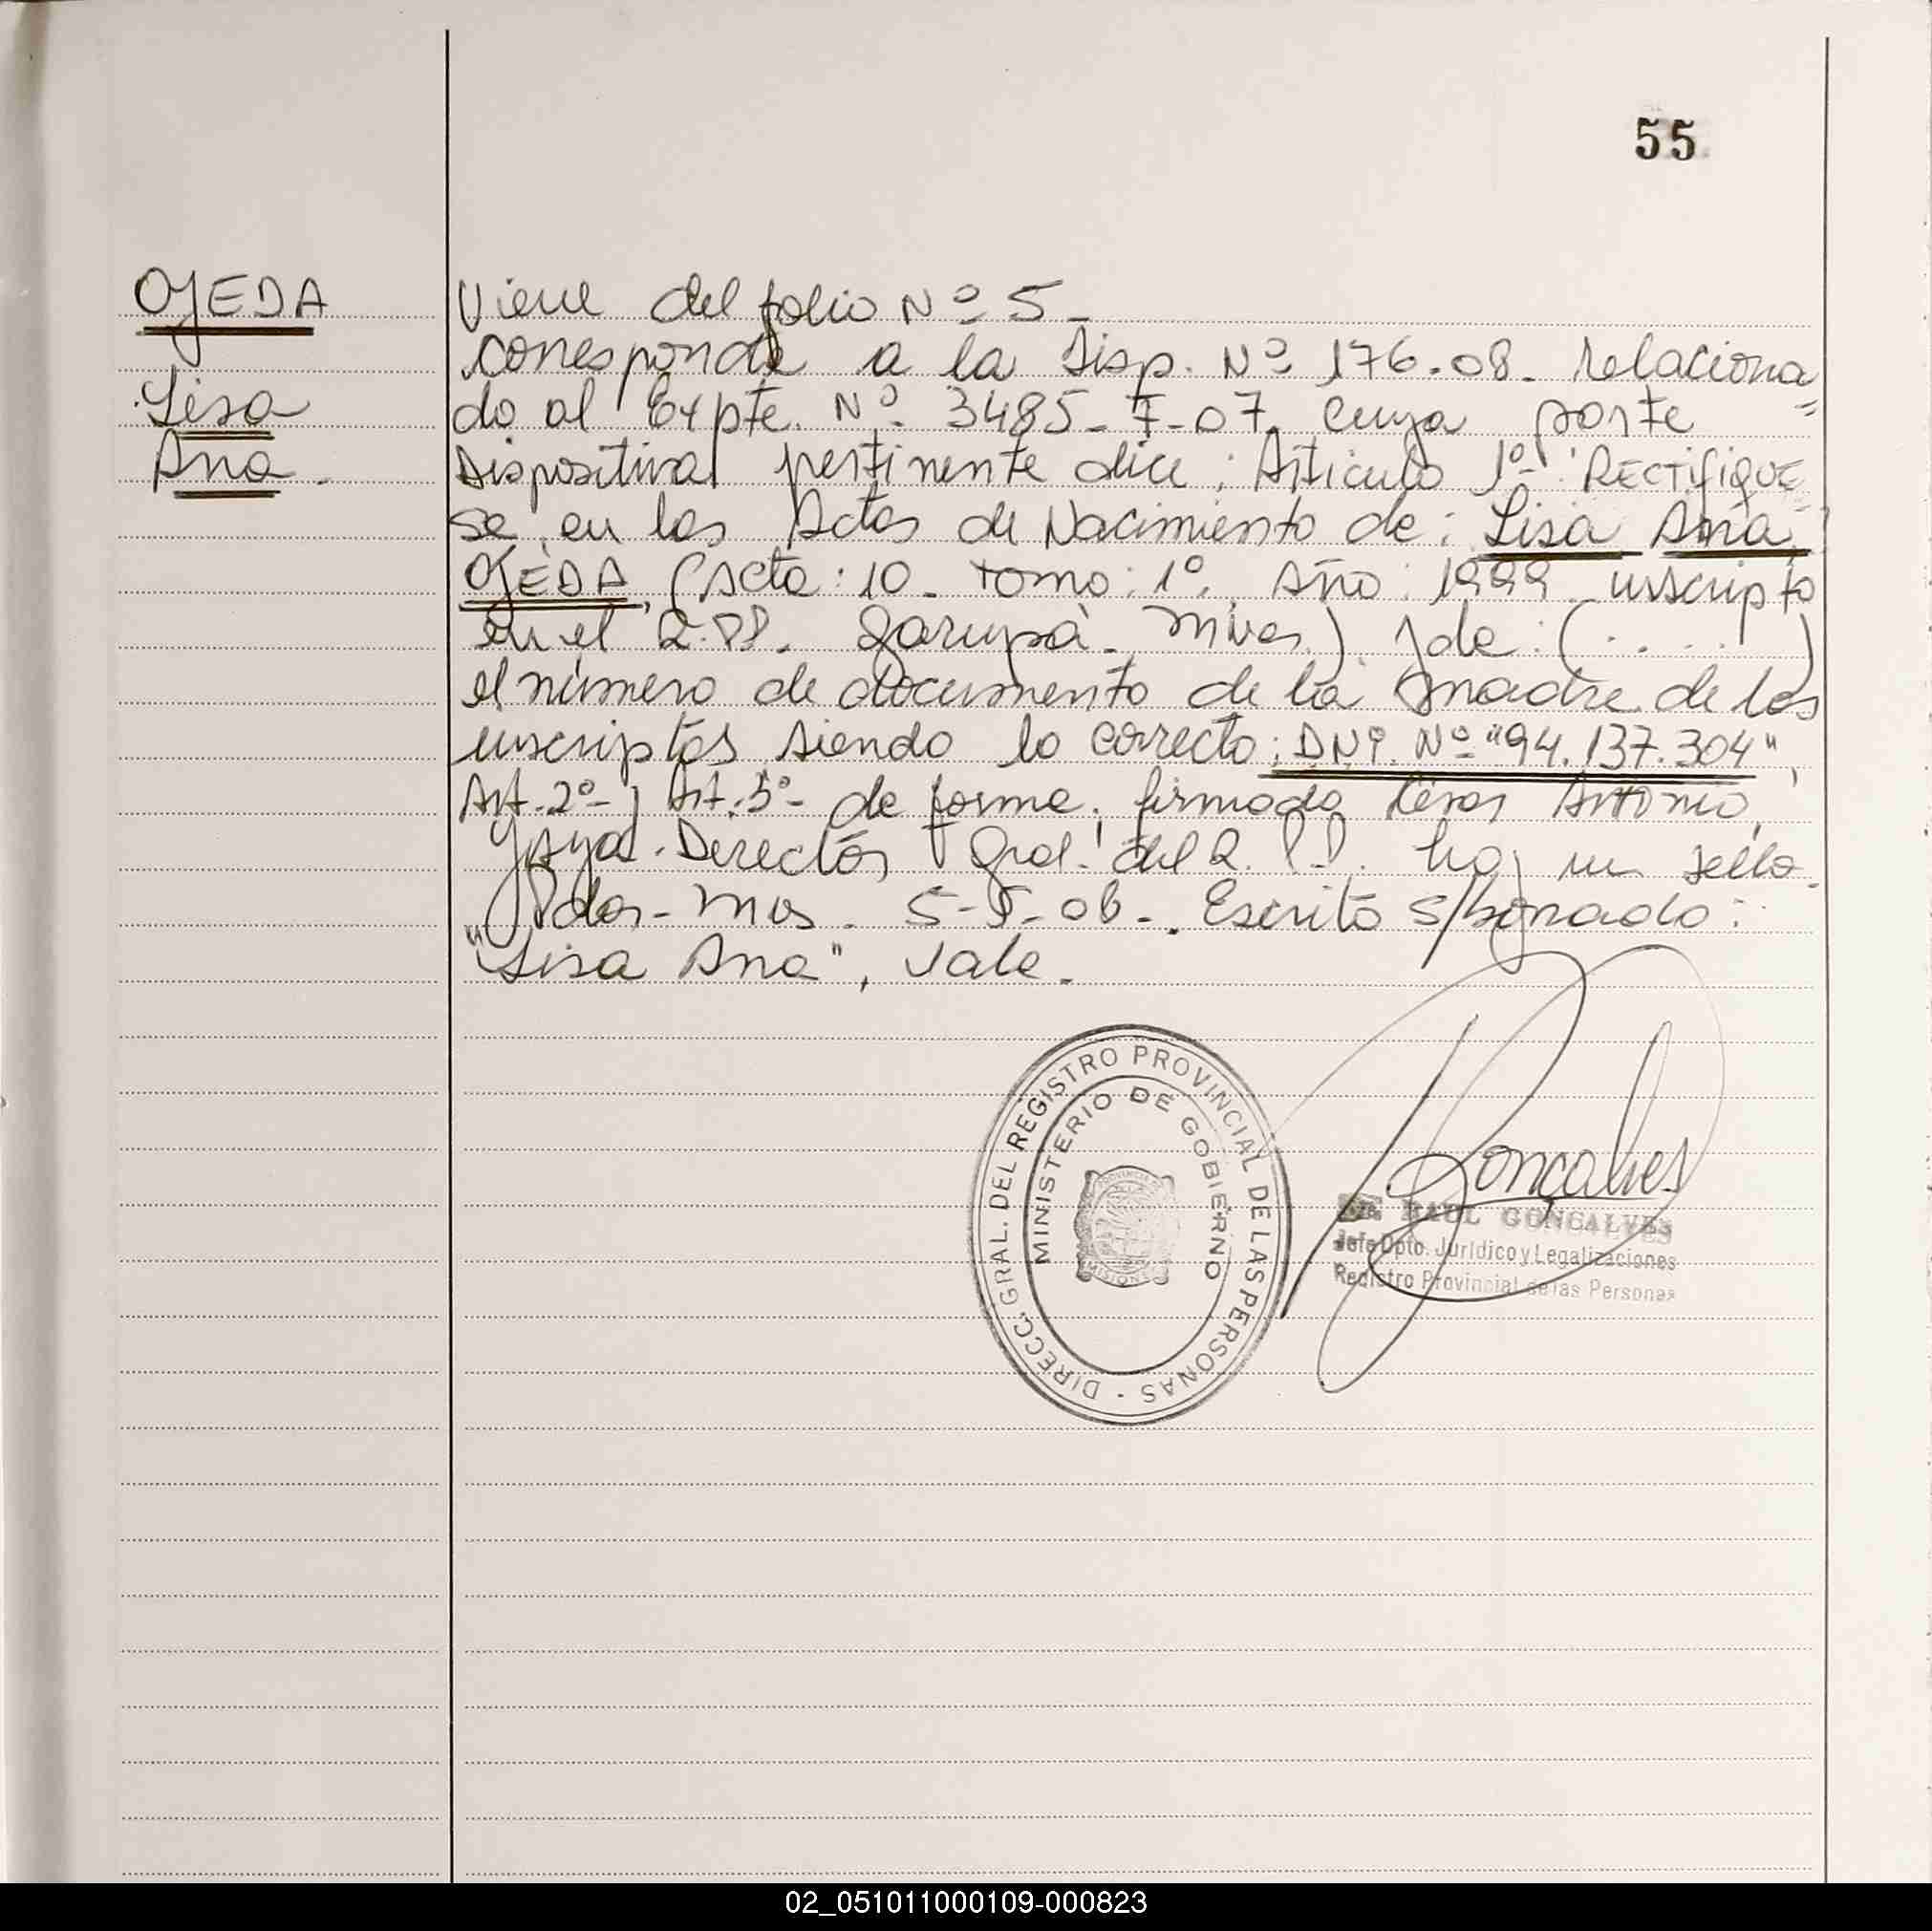 55
OJEDA
Lisa
Ana.
Viene del folio Nº 5_
Corresponde a la Disp. Nº 176.08_ relaciona
do al Expte. Nº 3485_7_07. cuya parte
Dispositiva pertinente dice: Articulo 1º: RECTIFIQUE
se en las Actas de Nacimiento de: Lisa Ana
OJEDA, (Acta: 10_ tomo: 1º. Año: 1999 inscripto
en el R.PP. Garupá_ Mnes.) y de: (....)
el número de documento de la madre de los
inscriptos siendo lo correcto: DNI. Nº "94.137.304",
Art. 2º_ y Art. 3º_ de forma. firmado César Antonio
Director Gral. del R.P.P. hay un sello.
Pdas_ Mns_ Escrito s/borrado:
"Lisa Ana", Vale_
DIRECC. GRAL. DEL REGISTRO PROVINCIAL DE LAS PERSONAS -
MINISTERIO DE GOBIERNO
MISIONES
Gonçalves
RAUL GONCALVES
Jefe Dpto. Jurídico y Legalizaciones
Registro Provincial de las Personas
02_051011000109-000823